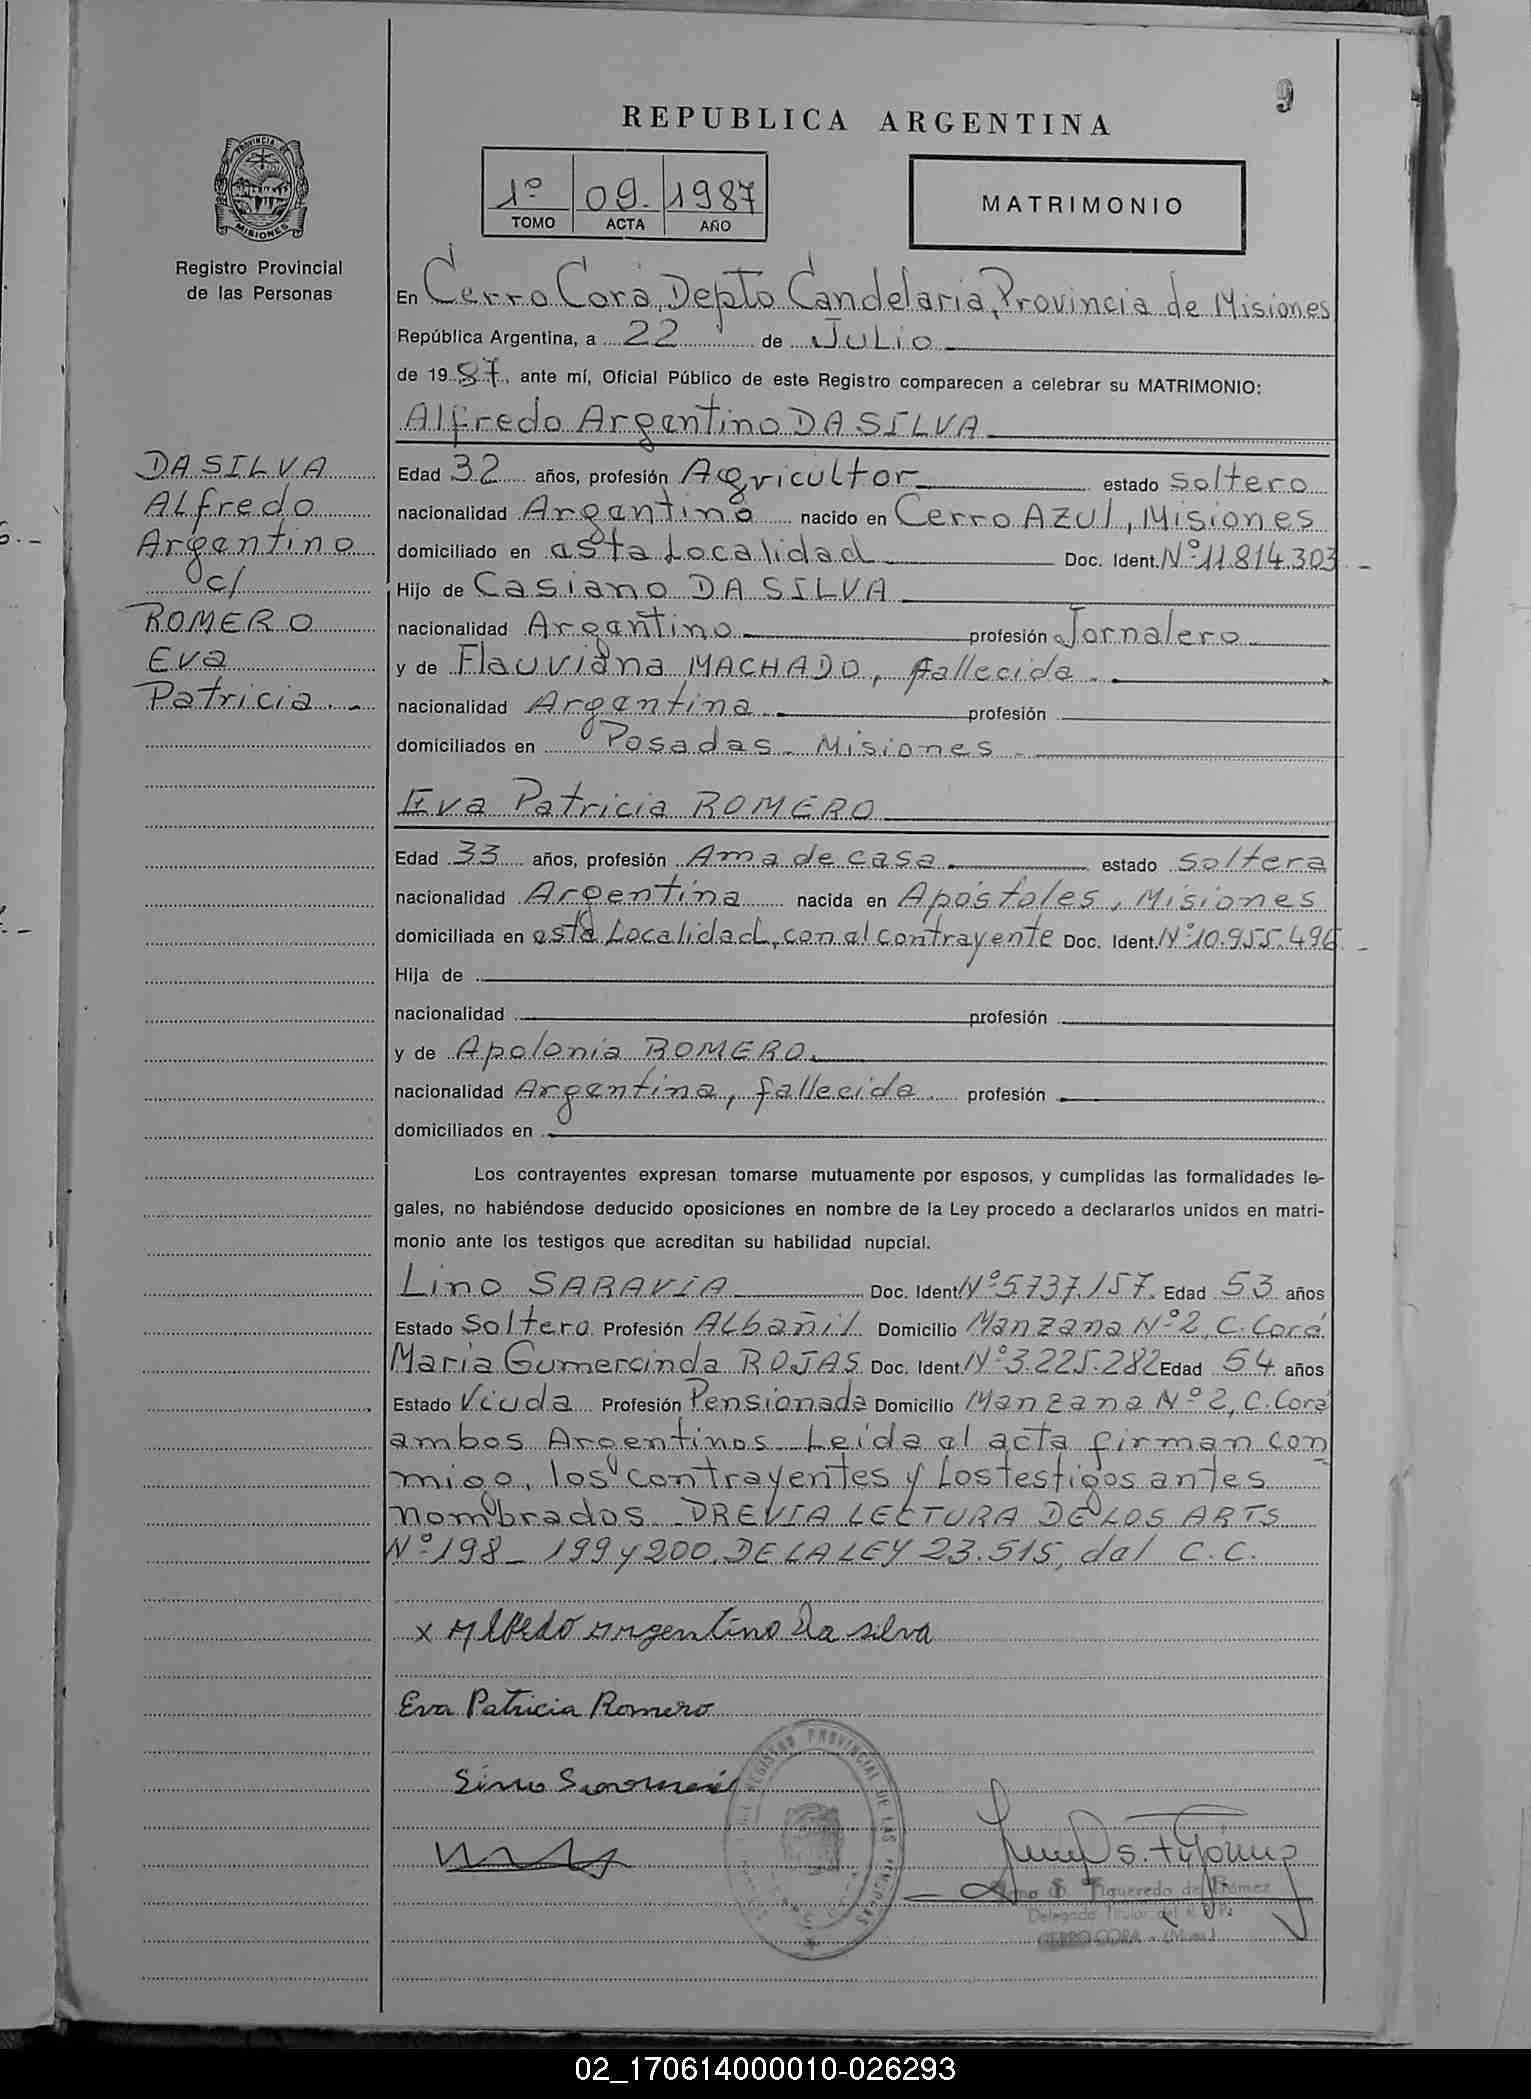 9
REPUBLICA ARGENTINA
PROVINCIA DE
MISIONES
1º 09. 1987
TOMO ACTA AÑO
MATRIMONIO
Registro Provincial
de las Personas
En Cerro Corá, Depto Candelaria, Provincia de Misiones
República Argentina, a 22 de Julio
de 1987, ante mí, Oficial Público de este Registro comparecen a celebrar su MATRIMONIO:
Alfredo Argentino DA SILVA
DA SILVA
Alfredo
Argentino
c/
ROMERO
Eva
Patricia. -
Edad 32 años, profesión Agricultor estado soltero
nacionalidad Argentino nacido en Cerro Azul, Misiones
domiciliado en esta Localidad Doc. Ident. Nº 11.814.303. -
Hijo de Casiano DA SILVA
nacionalidad Argentino profesión Jornalero
y de Flauviana MACHADO, fallecida.
nacionalidad Argentina. profesión
domiciliados en Posadas - Misiones -
Eva Patricia ROMERO
Edad 33 años, profesión Ama de casa estado soltera
nacionalidad Argentina nacida en Apóstoles, Misiones
domiciliada en esta Localidad, con el contrayente Doc. Ident. Nº 10.955.496. -
Hija de
nacionalidad profesión
y de Apolonia ROMERO.
nacionalidad Argentina, fallecida. profesión
domiciliados en
Los contrayentes expresan tomarse mutuamente por esposos, y cumplidas las formalidades le-
gales, no habiéndose deducido oposiciones en nombre de la Ley procedo a declararlos unidos en matri-
monio ante los testigos que acreditan su habilidad nupcial.
Lino SARAVIA Doc. Ident Nº 5.737.157. Edad 53 años
Estado Soltero Profesión Albañil Domicilio Manzana Nº 2, C. Corá
Maria Gumercinda ROJAS Doc. Ident. Nº 3.225.282 Edad 54 años
Estado Viuda Profesión Pensionada Domicilio Manzana Nº 2, C. Corá
ambos Argentinos Leida el acta firman con
migo, los contrayentes y los testigos antes
nombrados PREVIA LECTURA DE LOS ARTS
Nº 198 - 199 y 200. DE LA LEY 23.515, del C.C.
x Alfredo Argentino Da silva
Eva Patricia Romero
REGISTRO PROVINCIAL DE LAS PERSONAS
S. Figueredo de Gómez
Delegada Titular del R. P. P.
CERRO CORA - (Mnes)
02_170614000010-026293